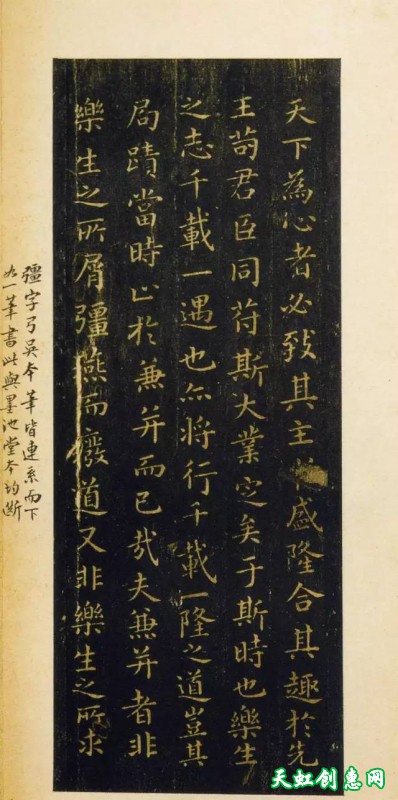 天下為心者必致其主盛隆合其趣於先
王苟君臣同苻斯大業定矣于斯時也樂生
之志千載一遇也亦將行千載一隆之道豈其
局蹟當時止於兼并而已哉夫兼并者非
樂生之所屑彊燕而廢道又非樂生之所求
彊字弓吳本筆皆連系而下
如一筆書此與墨池堂本均斷
天虹创惠网